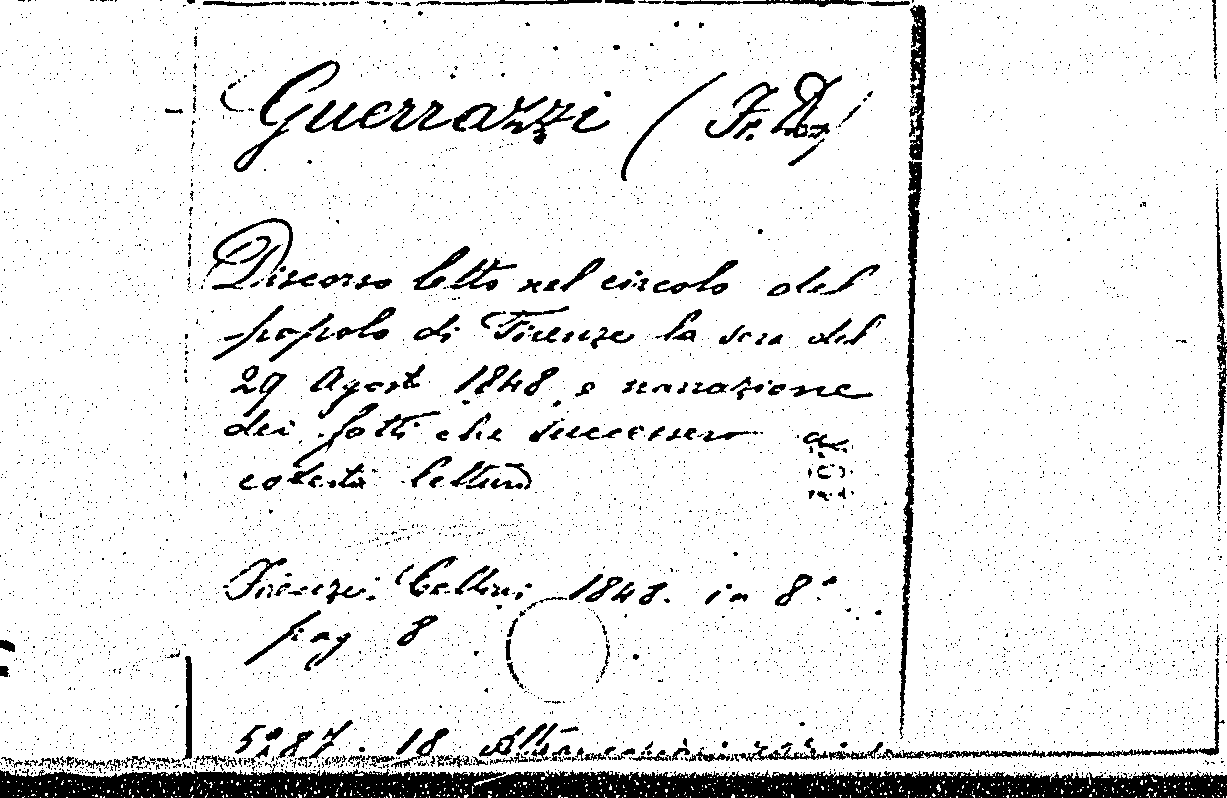 Guerrazzi (Fr. Dom)
Discorso letto nel circolo del
popolo di Firenze la sera del
29 Agosto 1848 e narrazione
dei fatti che successero a
codesta lettura
Firenze. Cellini 1848. in 8º
pag 8
5287. 18